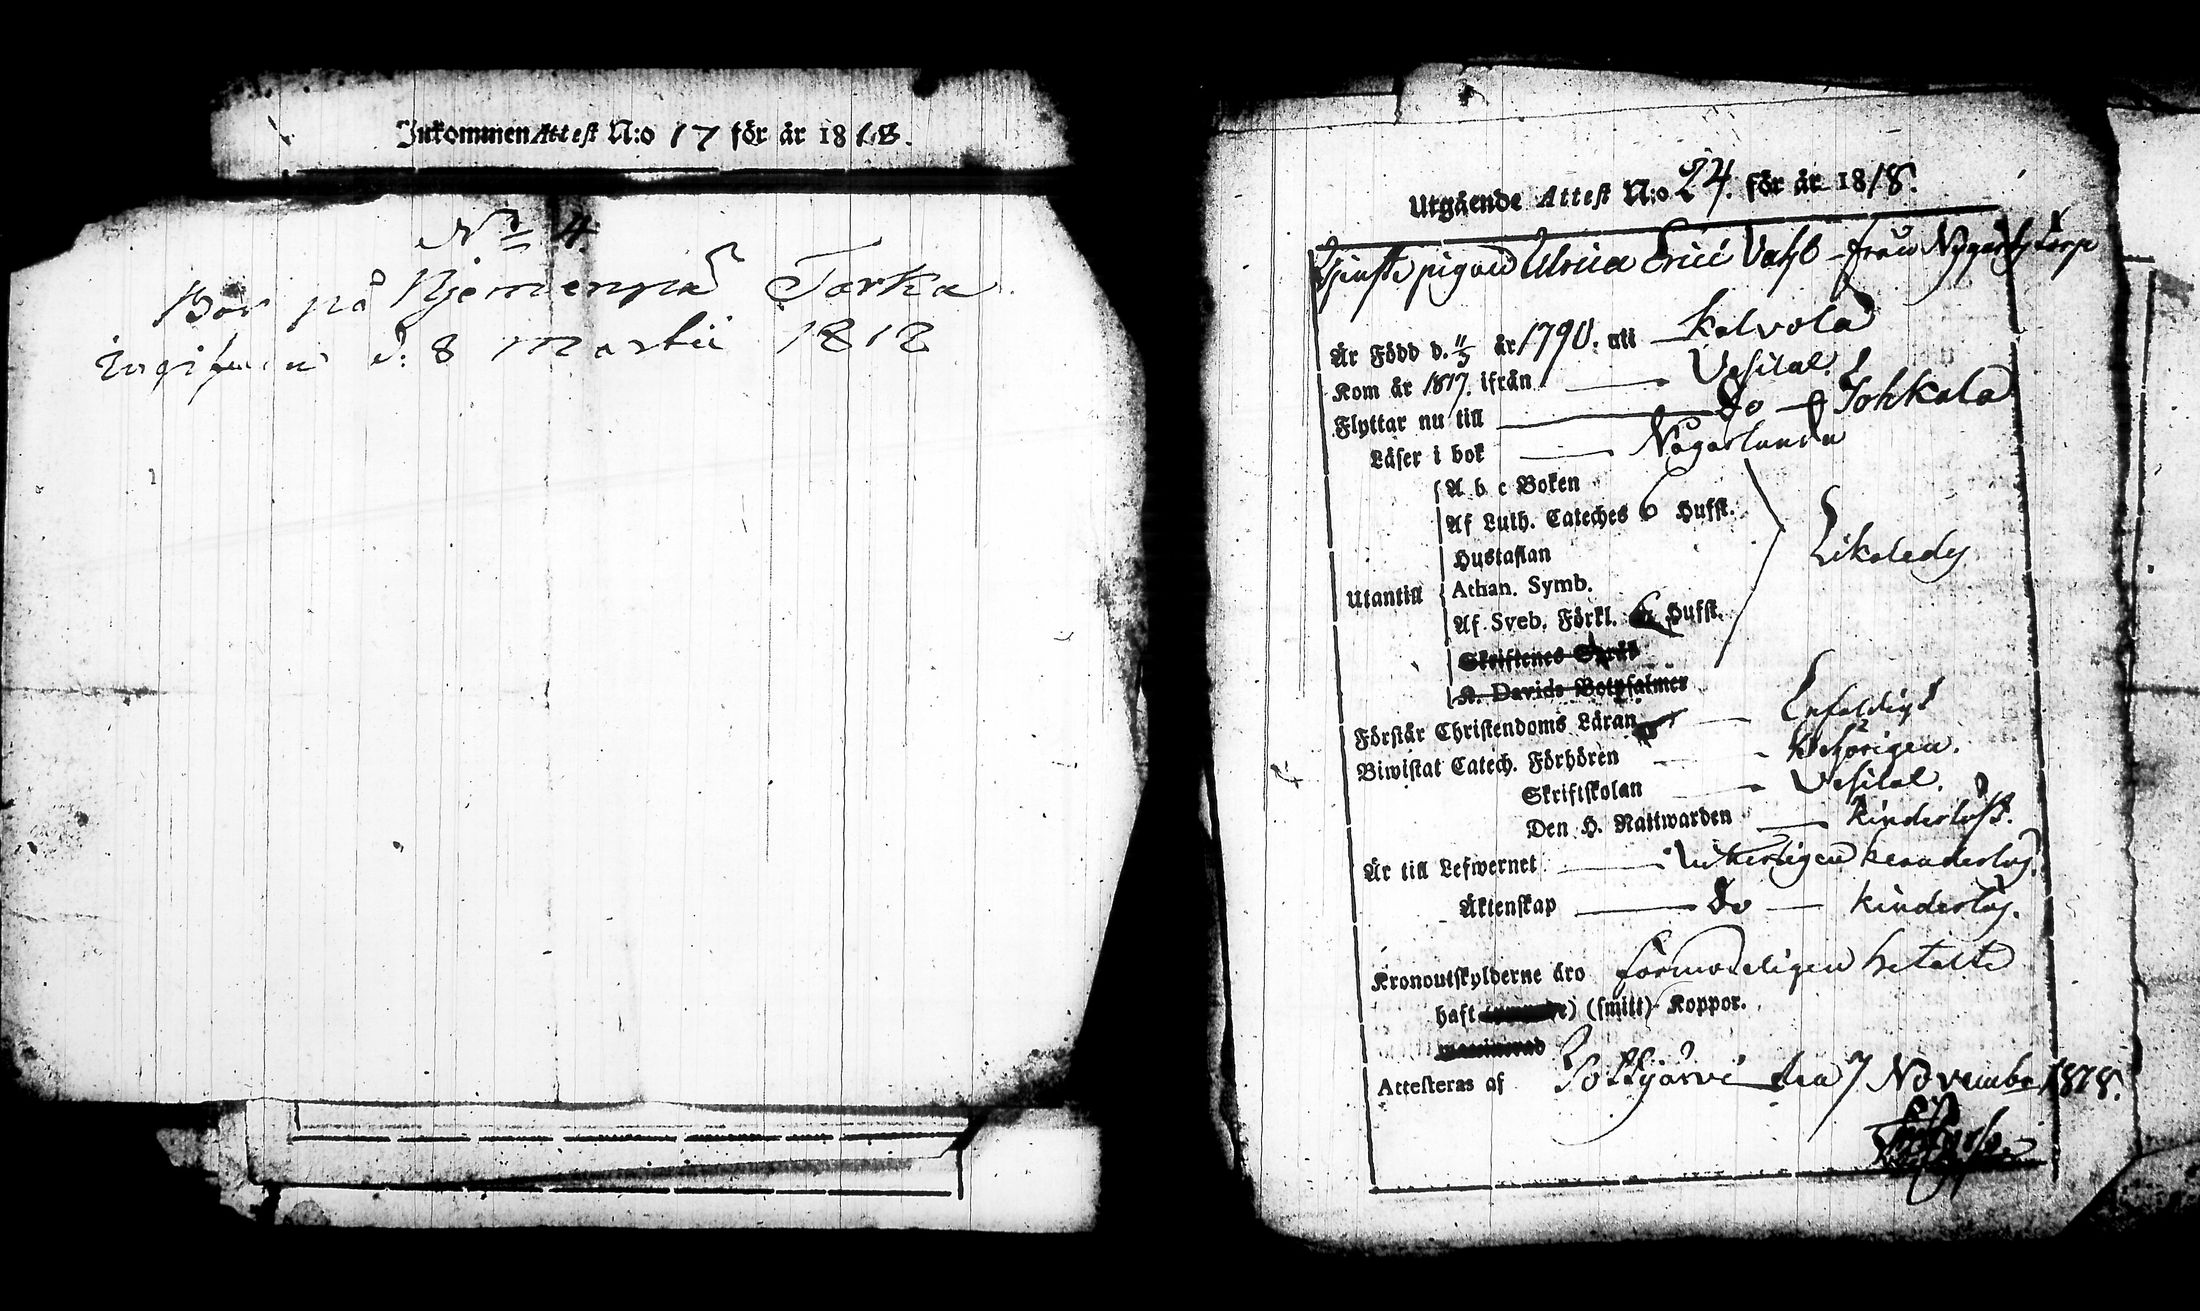 Inkommen Attest N:o 17 för år 1818.
No 4.
Bor på Njemenpää Torka
d: 8 Martii 1818
Utgående Attest N:o 24. för år 1818.
Tjenste pigan Ulrica Erici Dahl från Nygårds torp
Är Född d. 11/5 år 1790. uti Kalvola
Kom år 1817. ifrån Vesilax
Flyttar nu till Do Johkala
Läser i bok Någorlunda
A b c Boken
Af Luth. Cateches 6 Hufst.
Hustaflan
Likaledes
Utantill Athan. Symb.
Af Sveb. Förkl. Hufst.
Skriftenes Språk
K. Davids Botpsalmer
Förstår Christendoms Läran Enfaldigt
Biwistat Catech. Förhören behörigen.
Skriftskolan Vesilax.
Den H. Nattwarden hinderlöst.
Är till Lefwernet
Äktenskap Do hinderlös.
Kronoutskylderne äro förmodeligen betalte
haft (smitt) Koppor.
Attesteras af den 7 November 1818.